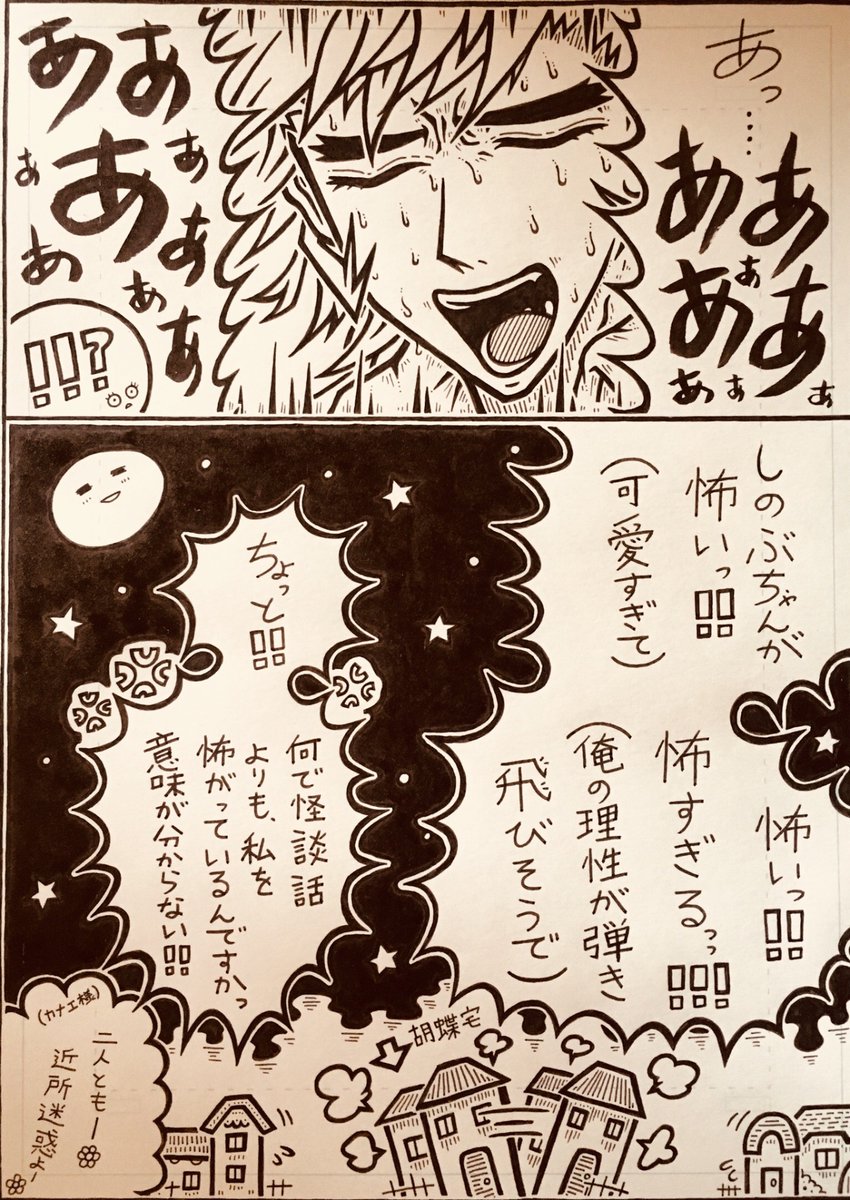 あっ‥‥
ああぁ
ああぁぁ
ああああぁ
ああぁあ
!!?
しのぶちゃんが
怖いっ!!
(可愛すぎて)
怖いっ!!
怖すぎるっっ!!!
(俺の理性が弾き
飛びそうで)
ちょっと!!
何で怪談話
よりも、私を
怖がっているんですかっ
意味が分からない!!
胡蝶宅
(カナエ様)
二人ともー
近所迷惑よー